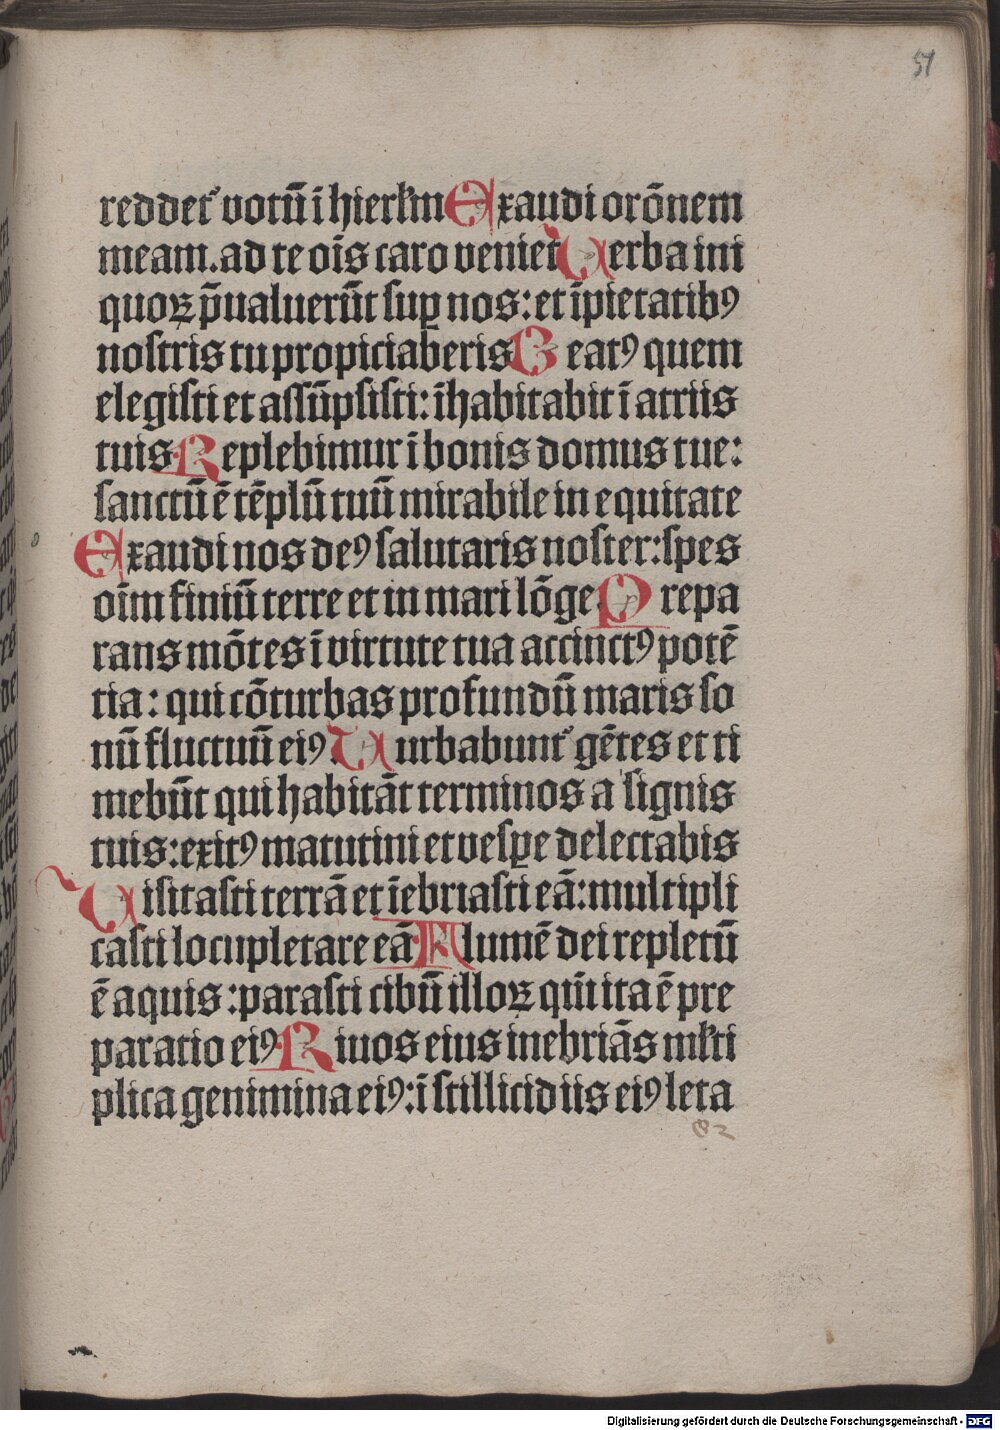 51
reddet᷑ votū ī hierłm Exaudi orōnem
meam. ad te oīs caro veniet Uerba ini
quoꝝ p̄ualuerūt suꝑ nos: et īpietatibꝰ
nostris tu propiciaberis Beatꝰ quem
elegisti et assūpsisti: īhabitabit ī atriis
tuis Replebimur ī bonis domus tue:
sanctū ē tēplū tuū mirabile in equitate
Exaudi nos deꝰ salutaris noster: spes
oīm finiū terre et in mari lōge Prepa
rans mōtes ī virtute tua accinctꝰ potē
tia: qui cōturbas profundū maris so
nū fluctuū eiꝰ. Turbabunt᷑ gētes et ti
mebūt qui habitāt terminos a signis
tuis: exitꝰ matutini et vesꝑe delectabis
Uisitasti terrā et īebriasti eā: multipli
casti locupletare eā Flumē dei repletū
ē aquis: parasti cibū illoꝝ qm̄ ita ē pre
paratio eiꝰ Riuos eius inebriās młti
plica genimina eiꝰ: ī stillicidiis eiꝰ leta
Digitalisierung gefördert durch die Deutsche Forschungsgemeinschaft - DFG